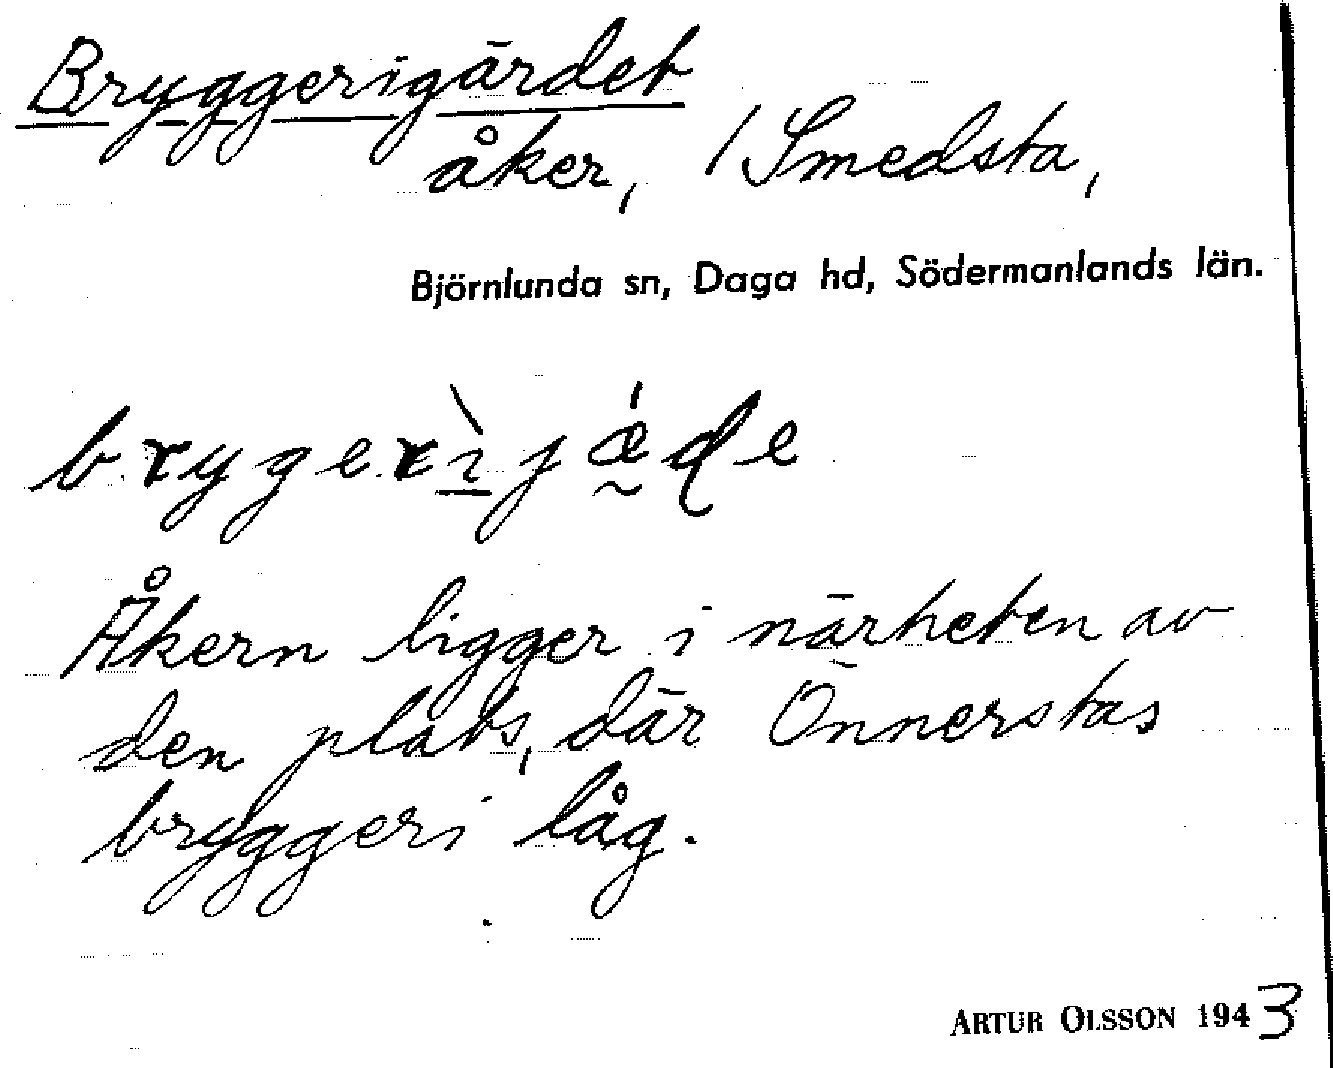 Bryggerigärdet
åker, / Smedsta,
Björnlunda sn, Daga hd, Södermanlands län.
brygerìjǽde
Åkern ligger i närheten av
den plats, där Önnerstas
bryggeri låg.
ARTUR OLSSON 1943